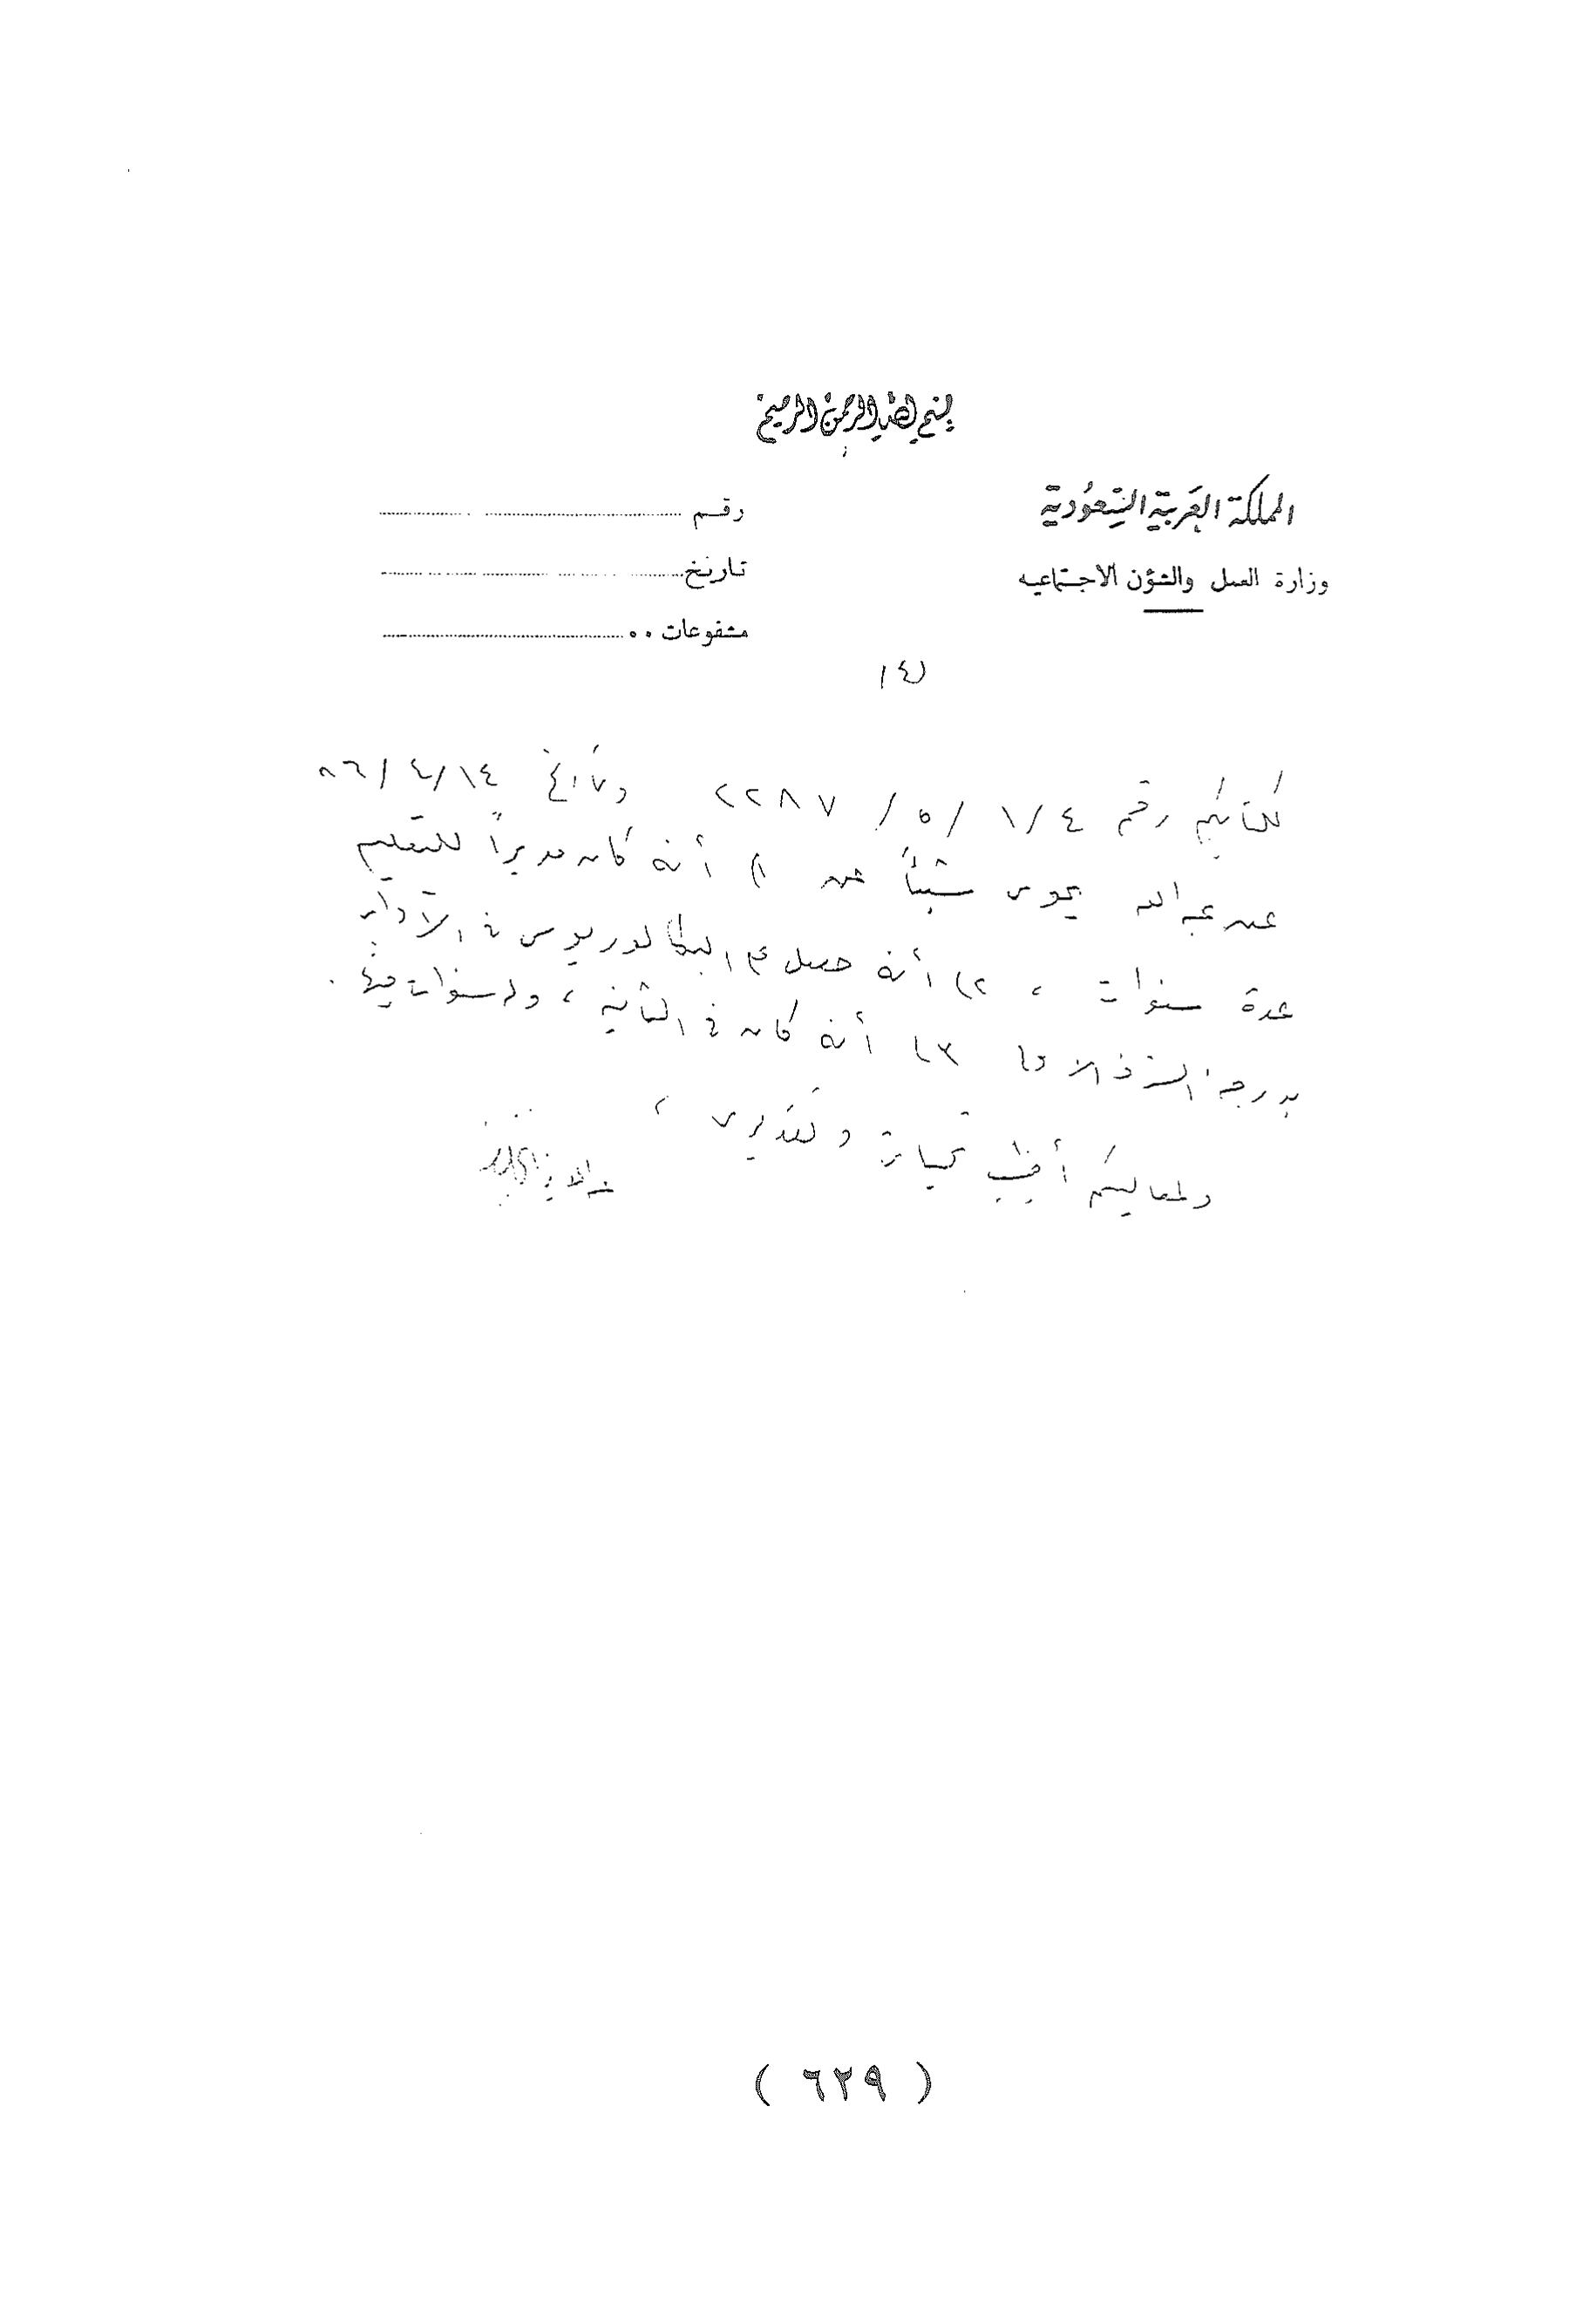 بسم الله الرحمن الرحيم
المملكة العربية السعودية
وزارة العمل والشؤن الاجتماعيه
رقم
تاريخ
مشفوعات ..
كتابكم رقم ١/٤ /٥ /٢٢٨٧ وتاريخ ٨٦/٤/١٤
عن عبدالله يحوى شيئاً عن ١) أنه كان مديراً للتعليم
عدة سنوات ، ٢) أنه حصل على البكالوريوس في الآداب
بدرجة الشرف ٣) أنه كان في الثانية ، وله سنوات فيها .
ولمعاليكم أطيب تحياتي وتقديرى ،
( ٦٢٩ )